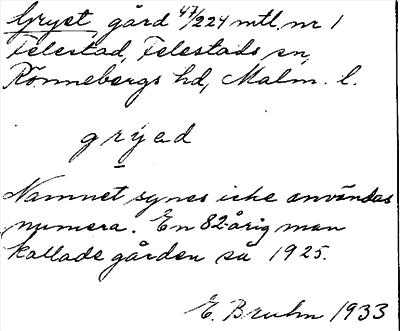 Gryet gård 47/224 mtl. nr 1
Felestad, Felestads sn,
Rönnebergs hd, Malm. l.
grýed
Namnet synes icke användas
numera. En 82-årig man
kallade gården så 1925.
E. Bruhn 1933